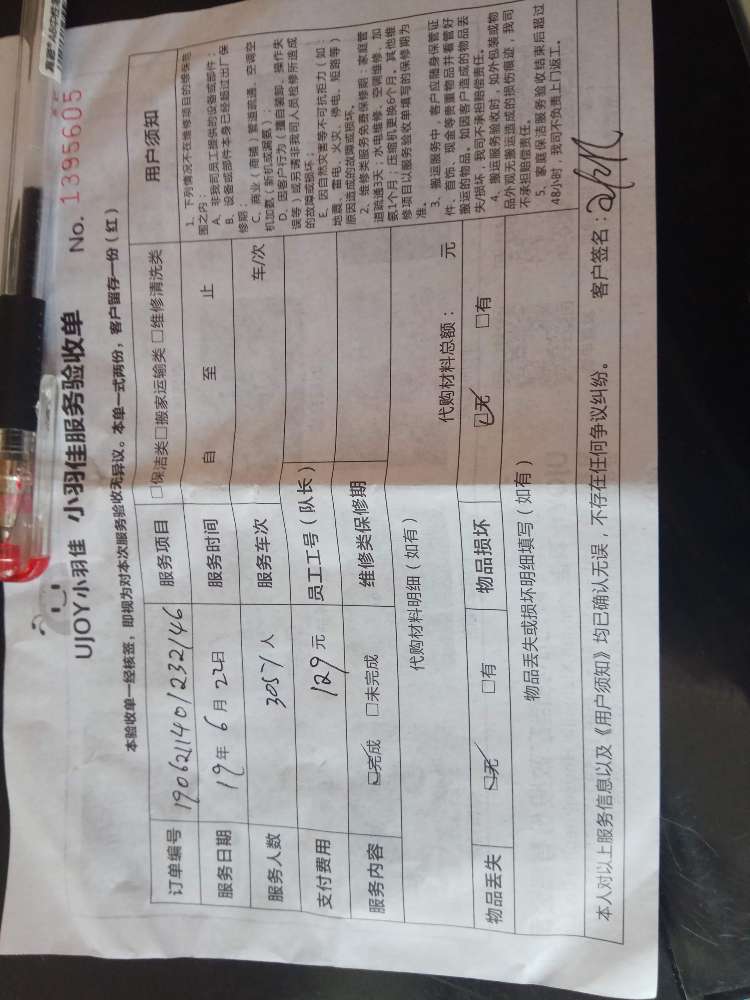 UJOY小羽佳 小羽佳服务验收单 No. 1395605
本验收单一经核签，即视为对本次服务验收无异议。本单一式两份，客户留存一份（红）
订单编号 1906211401232146 服务项目 □保洁类□搬家运输类 □维修清洗类
服务日期 19年 6月 22日 服务时间 自 至 止
服务人数 3057/人 服务车次 车/次
支付费用 129元 员工工号（队长）
服务内容 ☑完成 □未完成 维修类保修期
代购材料明细（如有） 代购材料总额： 元
物品丢失 ☑无 □有 物品损坏 ☑无 □有
物品丢失或损坏明细填写（如有）
用户须知
1、下列情况不在维修项目的维保范
围之内：
A、非我司员工提供的设备或部件；
B、设备或部件本身已经超过出厂保
修期；
C、商业（商铺）管道疏通、空调空
机加氨（新机或漏氨）；
D、因客户行为（擅自装卸、操作失
误等）或另请非我司人员检修所造成
的故障或损坏；
E、因自然灾害等不可抗拒力（如：
地震、雷电、火灾、停电、短路等）
原因造成的故障或损坏。
2、维修类服务免费保修期：家庭管
道疏通3天；水电维修、空调维修、加
氨1个月；压缩机更换6个月。其他维
修项目以服务验收单填写的保修期为
准。
3、搬运服务中，客户应随身保管证
件、首饰、现金等贵重物品并看管好
搬运的物品。如因客户造成的物品丢
失/损坏，我司不承担赔偿责任。
4、搬运服务验收时，如外包装或物
品外观无搬运造成的损伤痕迹，我司
不承担赔偿责任。
5、家庭保洁服务验收结束后超过
48小时，我司不负责上门返工。
本人对以上服务信息以及《用户须知》均已确认无误，不存在任何争议纠纷。 客户签名：